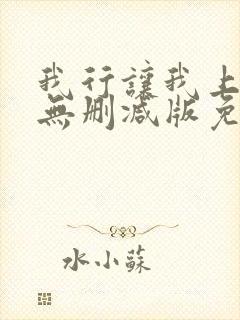 我行讓我上
無刪減版免
水小蘇